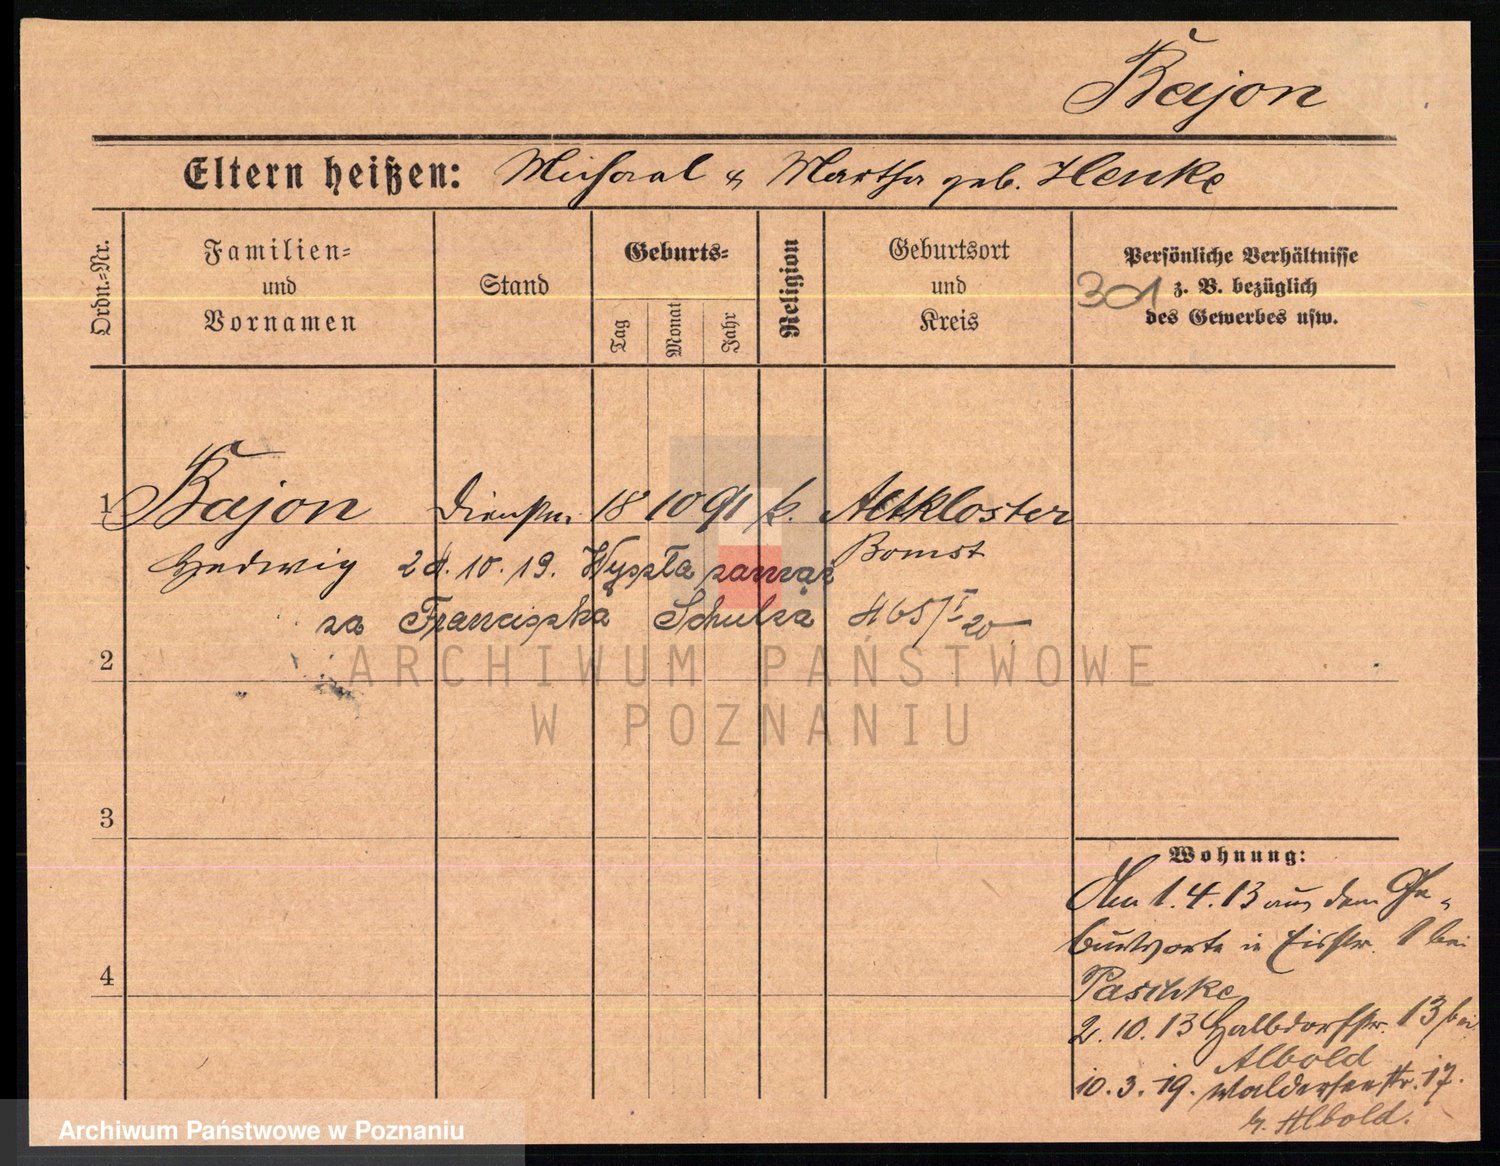 Bajon
Eltern heißen: Michael & Martha geb. Henke
Ordn.-Nr.
Familien-
und
Vornamen
Stand
Geburts-
Tag
Monat
Jahr
Religion
Geburtsort
und
Kreis
Persönliche Verhältnisse
z. B. bezüglich
des Gewerbes usw.
301
1 Bajon Dienstm. 18 10 91 k. Altkloster
Hedwig Bomst
28.10.19. Wyszła zamąż
za Franciszka Schulza 465/I 20
2
3
4
Wohnung:
Am 1.4.13 aus dem Ge-
burtsorte in Eisstr. 1 bei
Paschke
2.10.13 Halbdorfstr. 13 bei
Albold
10.3.19. Walderseestr. 17.
b. Albold.
ARCHIWUM PAŃSTWOWE
W POZNANIU
Archiwum Państwowe w Poznaniu